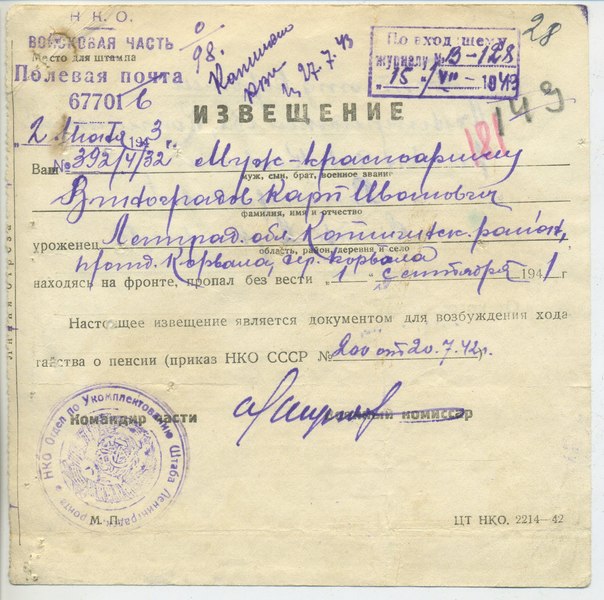 Н К О.
ВОЙСКОВАЯ ЧАСТЬ
Место для штампа
Полевая почта
67701 б
98.
27.7.43
По входящему
журналу № В-128
"15" VII 1943
28
149
181
ИЗВЕЩЕНИЕ
"2" июля 1943 г.
№ 392/4/32
Ваш муж-красноармеец
муж, сын, брат, военное звание
Виноградов Карп Иванович
фамилия, имя и отчество
уроженец Ленград. обл. Капшинск. район,
область, район, деревня и село
Корвала, дер. Корвала
находясь на фронте, пропал без вести „1" сентября 1941 г
Настоящее извещение является документом для возбуждения хода
тайства о пенсии (приказ НКО СССР № 200 от 20.7.42г.
Командир части
комиссар
НКО Отдел по Укомплектованию Штаба Ленинград фронта
М. П.
ЦТ НКО. 2214—42